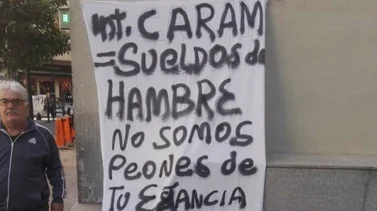 Inst. CARAM
=SUELDOS de
HAMBRE
NO SOMOS
Peones de
TU ESTANCIA